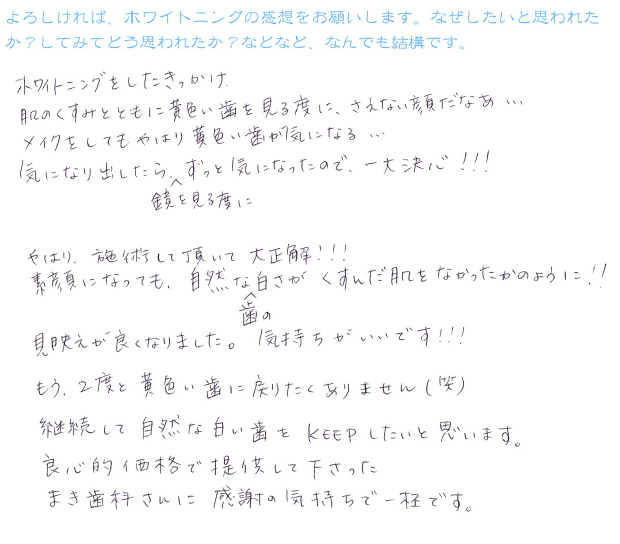 よろしければ、ホワイトニングの感想をお願いします。なぜしたいと思われた
か？してみてどう思われたか？などなど、なんでも結構です。
ホワイトニングをしたきっかけ
肌のくすみとともに黄色い歯を見る度に、さえない顔だなあ…
メイクをしてもやはり黄色い歯が気になる…
気になり出したら、ずっと気になったので、一大決心!!!
鏡を見る度に
やはり、施術して頂いて大正解!!!
素顔になっても、自然な白さがくすんだ肌をなかったかのように!!
歯の
見映えが良くなりました。気持ちがいいです!!!
もう、2度と黄色い歯に戻りたくありません(笑)
継続して自然な白い歯をKEEPしたいと思います。
良心的価格で提供して下さった
まき歯科さんに感謝の気持ちで一杯です。